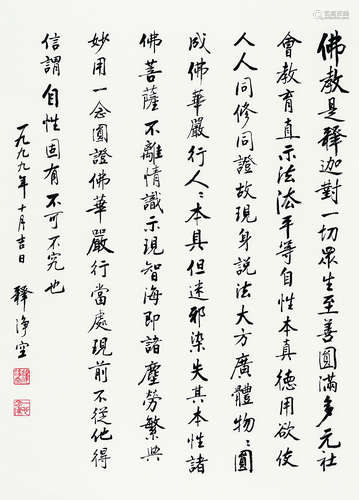 佛教是釋迦對一切眾生至善圓滿多元社
會教育直示法法平等自性本真德用欲使
人人同修同證故現身說法大方廣體物〻圓
成佛華嚴行人〻本具但迷邪染失其本性諸
佛菩薩不離情識示現智海即諸塵勞繁興
妙用一念圓證佛華嚴行當處現前不從他得
信謂自性固有不可不究也
一九九九年十月吉日
釋淨空